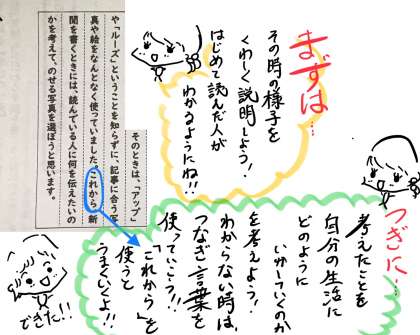 まずは…
その時の様子を
くわしく説明しよう！
はじめて読んだ人が
わかるようにね!!
そのときは、「アップ」
や「ルーズ」ということを知らずに、記事に合う写
真や絵をなんとなく使っていました。これから、新
聞を書くときには、読んでいる人に何を伝えたいの
かを考えて、のせる写真を選ぼうと思います。
つぎに…
考えたことを
自分の生活に
どのように
いかしていくのか
を考えよう！
わからない時は、
つなぎ言葉を
使っていこう!!
「これから」を
使うと
うまくいくよ!!
できた!!